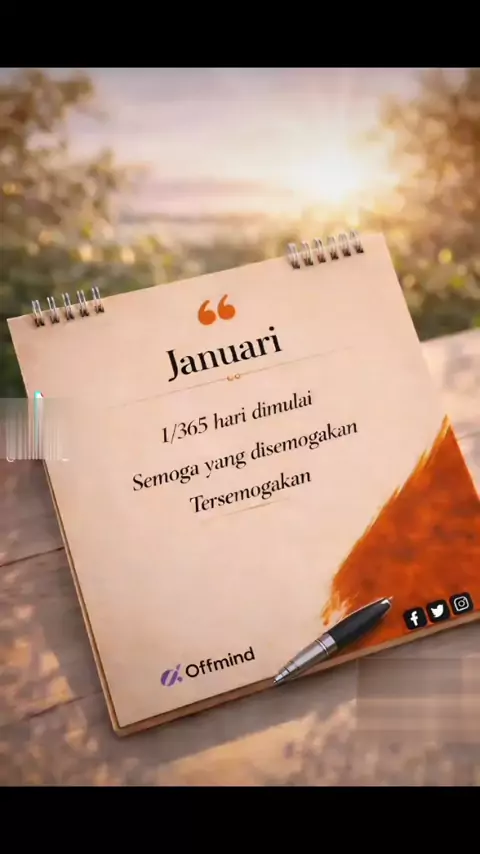 Januari
1/365 hari dimulai
Semoga yang disemogakan
Tersemogakan
Offmind